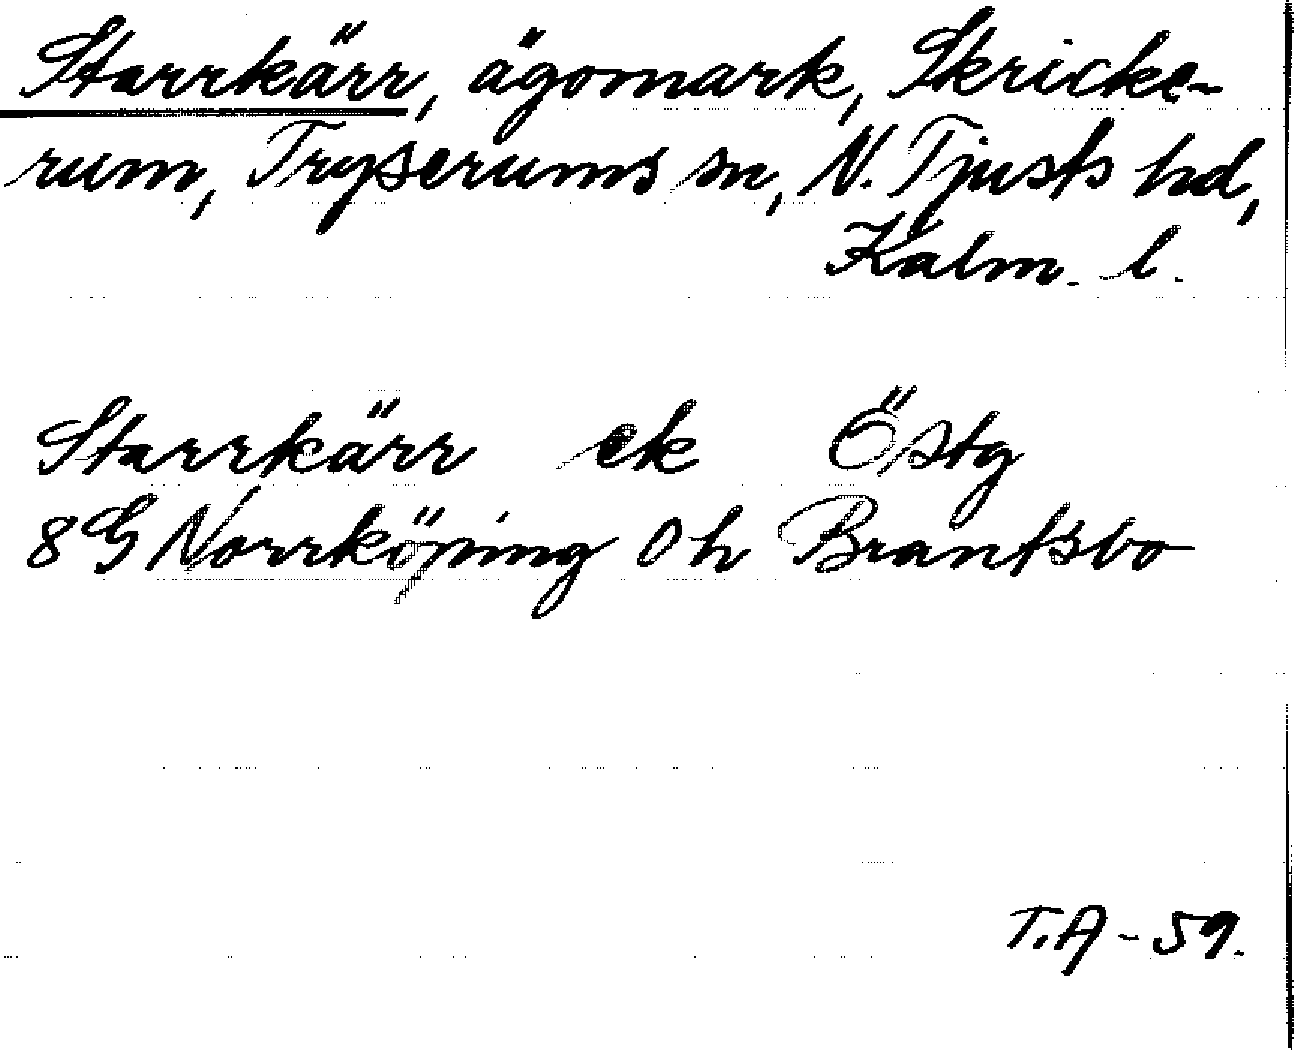 Starrkärr, ägomark, Skricke-
rum, Tryserums sn, N. Tjusts hd,
Kalm. l.
Starrkärr ek Östg
8G Norrköping Oh Brantsbo
T.A - 59.